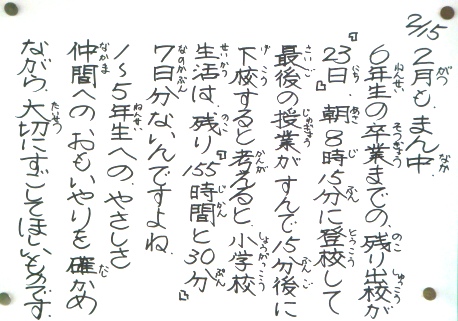 2/15
2月も、まん中。
6年生の卒業までの残り出校が
『23日。朝8時15分に登校して
最後の授業がすんで15分後に
下校すると考えると小学校
生活は、残り155時間と30分』
7日分ないんですよね。
1〜5年生への、やさしさ
仲間への、おもいやりを確かめ
ながら、大切にすごしてほしいものです。